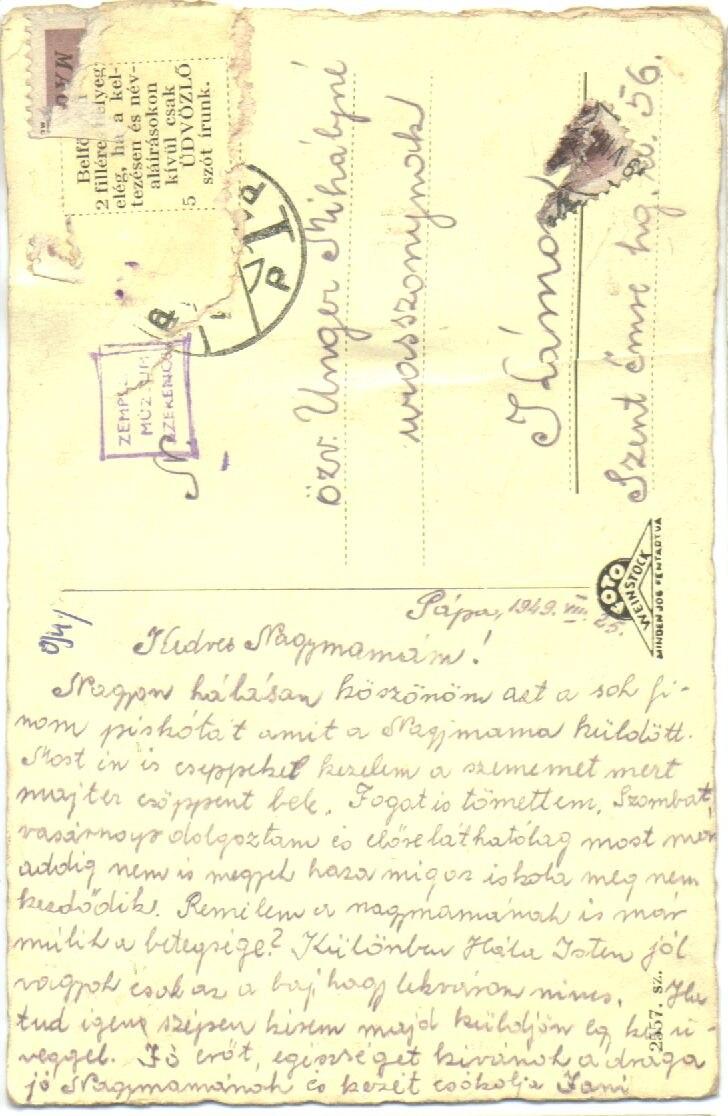 MAG
Belfö
2 filléres bélyeg
elég, ha a kel-
tezésen és név-
aláírásokon
kívül csak
5 ÜDVÖZLŐ
szót írunk.
ZEMPL
MÚZEUM
SZERENCS
özv. Unger Mihályné
urasszonynak
Kámon
Szent Imre hg. u. 56.
FOTO
WEINSTOCK
MINDEN JOG FENTARTVA
2557. sz.
Pápa, 1949. VIII. 25.
Kedves Nagymamám!
Nagyon hálásan köszönöm azt a sok fi-
nom piskótát amit a Nagymama küldött.
Most én is cseppekel kezelem a szememet mert
majter csöppent bele. Fogat is tömettem. Szombat,
vasárnap dolgoztam és előreláthatólag most már
addig nem is megyek haza mig az iskola meg nem
kezdődik. Remélem a nagymamának is már
múlik a betegsége? Különben Hála Isten jól
vagyok csak az a baj hogy lekvárom nincs. Ha
tud igen szépen kérem majd küldjön eg kis ü-
veggel. Jó erőt, egészséget kivánok a drága
jó Nagymamának és kezét csókolja Jani